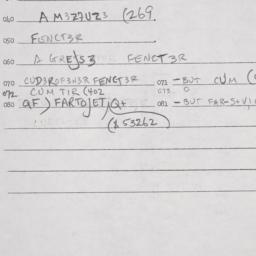 060 A M3Z7UZ3 (269.
050 FENCT3R
060 A GREJS3 FENCT3R
070 CUD3ROF3N3R FENCT3R 071 - BUT CUM (
072 CUM TIR (402 073 0
080 QF) FARTOJETJQ+ 081 - BUT FAR-S+V
(153262